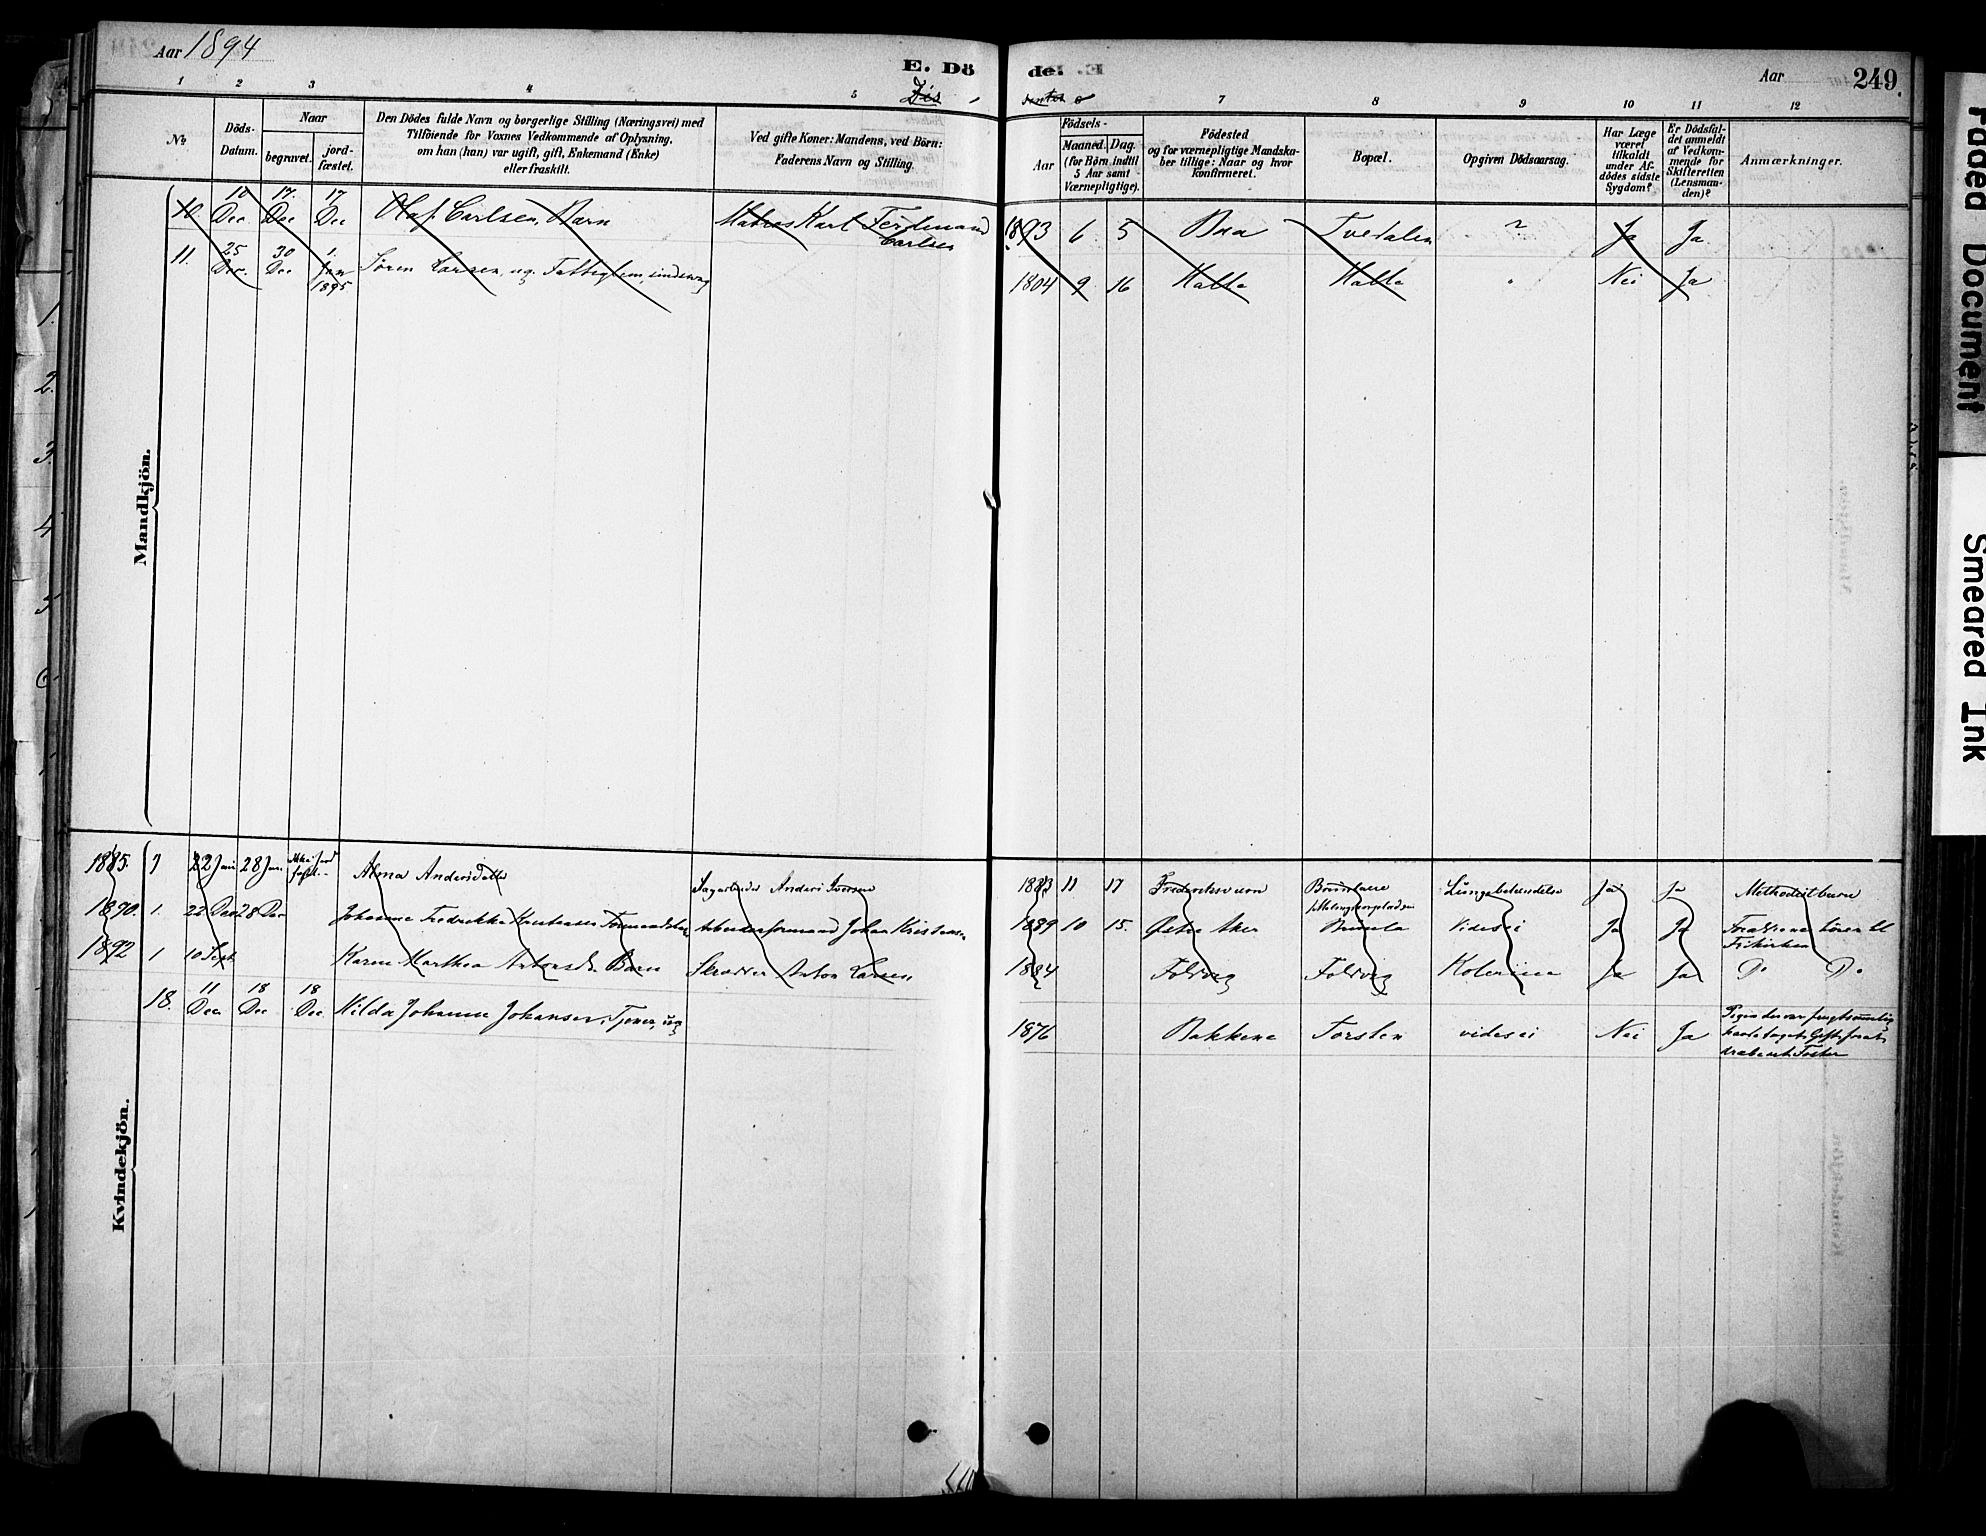 Aar 1894
E. Dö
de.
Aar
249
Dis
senter e
1 2 3 4 5 7 8 9 10 11 12
No
Döds-
Datum.
Naar
begravet.
jord-
fæstet.
Den Dödes fulde Navn og borgerlige Stilling (Næringsvei) med
Tilföiende for Voxnes Vedkommende af Oplysning,
om han (hun) var ugift, gift, Enkemand (Enke)
eller fraskilt.
Ved gifte Koner: Mandens, ved Börn:
Faderens Navn og Stilling.
Födsels-
Aar
Maaned. Dag.
(for Börn indtil
5 Aar samt
Værnepligtige).
Födested
og for værnepligtige Mandska-
ber tillige: Naar og hvor
konfirmeret.
Bopæl.
Opgiven Dödsaarsag.
Har Læge
været
tilkaldt
under Af-
dödes sidste
Sygdom?
Er Dödsfal-
det anmeldt
af Vedkom-
mende for
Skifteretten
(Lensman-
den)?
Anmærkninger.
Mandkjön.
10. 10 Dec 17. Dec 17 Dec Olaf Carlsen, Barn Matros Karl Ferdinand Carlsen 1893 6 5 Tvedalen ? Ja Ja
11. 25 Dec. 30 Dec 1. Jan 1895 Sören Larsen, ug. Fattiglem 1804 9 16 Halle Halle " Nei Ja
Kvindekjön.
1885. 22 Jan 28 Jan. Alma Andersdatter Anders Iversen 1883 11 17 Fredriksværn Lungebetændelse Ja Ja Methodistbarn
1890. 1. 22 Dec 28 Dec Johanne Fredrikke Arbeiderformand Johan Kristensen 1889 10 15. Østre Aker Brunla Videsei Ja Ja Forældrene hörer til Frikirken
1892 1 10 Sept Karen Marthea Antonsd. Barn Skrædder Anton Larsen 1884 Foldvig Foldvig Kolerine Ja Ja Do Do
18. 11 Dec. 18 Dec 18 Dec. Hilda Johanne Johansen, Tjener, ug 1876 Bakkene Torsten videsei Nei Ja Pigen der var frugtsommelig havde taget Gift for at dræbe sit Foster
Faded Document
Smeared Ink